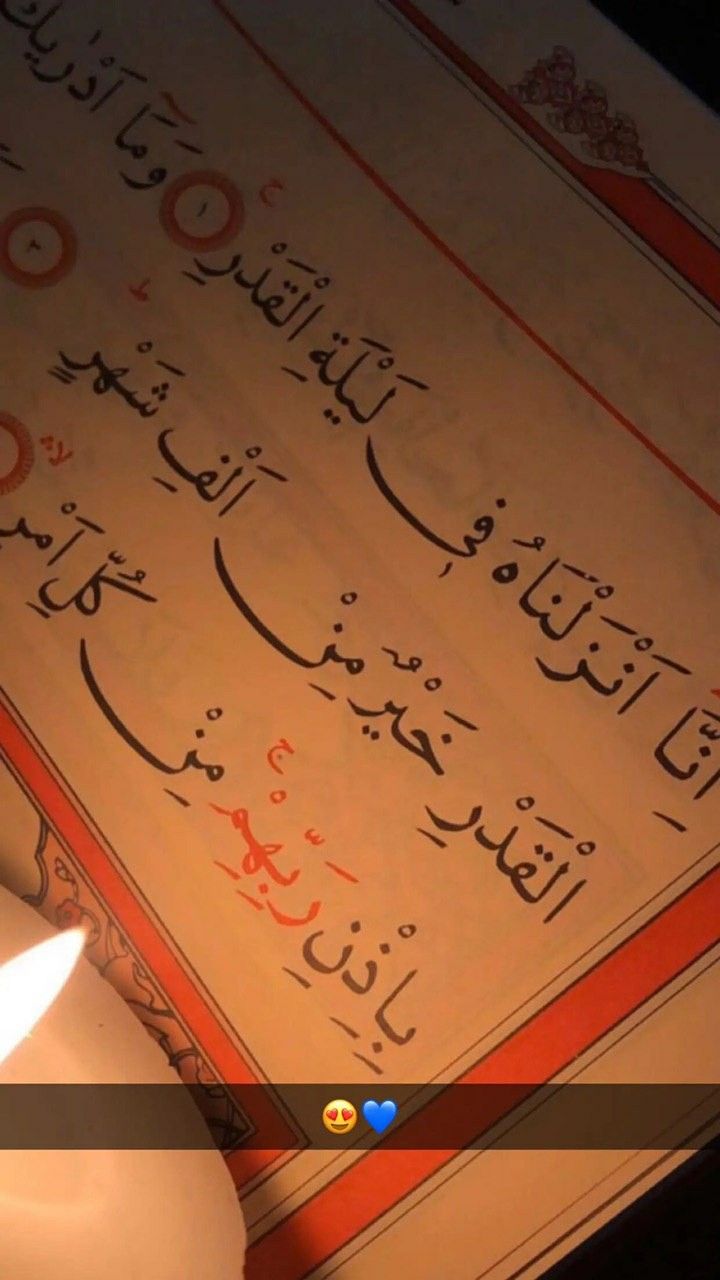 اِنَّٓا اَنْزَلْنَاهُ ف۪ي لَيْلَةِ الْقَدْرِ ١ وَمَٓا اَدْرٰيكَ
الْقَدْرِ خَيْرٌ مِنْ اَلْفِ شَهْرٍ
بِاِذْنِ رَبِّهِمْ مِنْ كُلِّ اَمْرٍ
😍💙